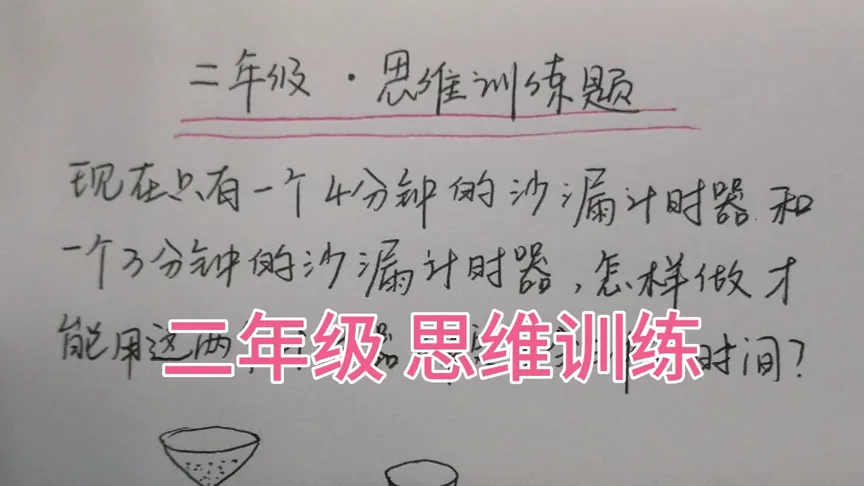 二年级·思维训练题
现在只有一个4分钟的沙漏计时器和
一个3分钟的沙漏计时器,怎样做才
能用这两 时间?
二年级 思维训练